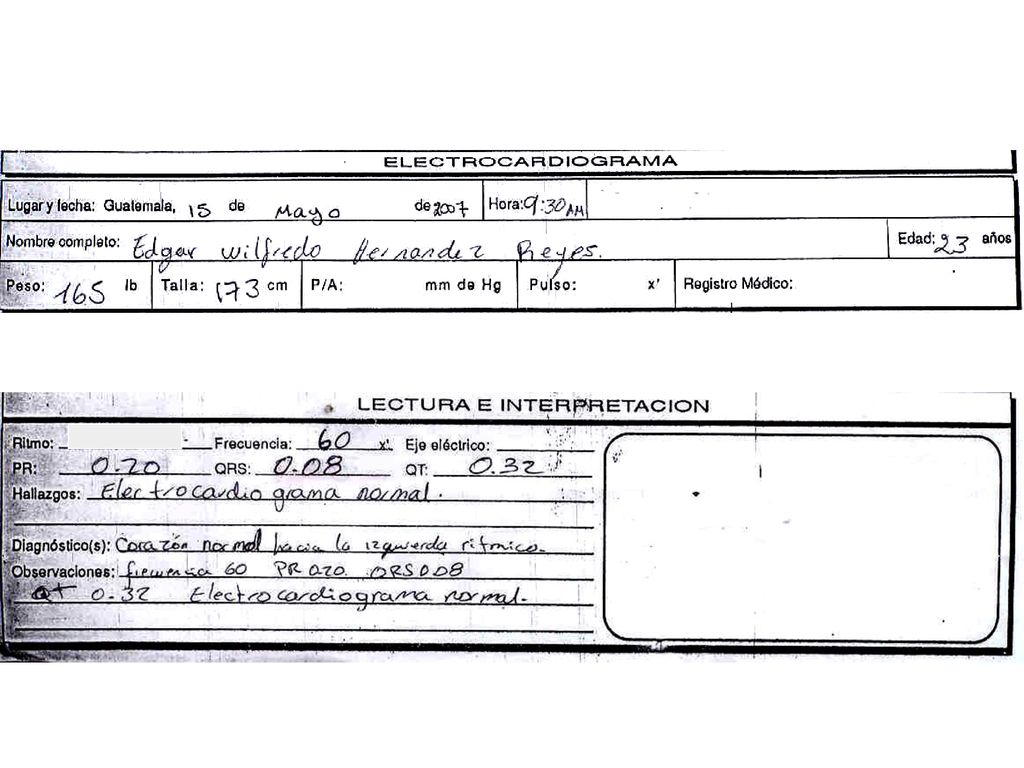 ELECTROCARDIOGRAMA
Lugar y fecha: Guatemala, 15 de Mayo de 2007 Hora: 9:30 AM
Nombre completo: Edgar Wilfredo Hernandez Reyes. Edad: 23 años
Peso: 165 lb Talla: 173 cm P/A: mm de Hg Pulso: x' Registro Médico:
LECTURA E INTERPRETACION
Ritmo: Frecuencia: 60 x'. Eje eléctrico:
PR: 0.20 QRS: 0.08 QT: 0.32
Hallazgos: Electrocardiograma normal.
Diagnóstico(s): Corazón normal hacia la izquierda ritmico.
Observaciones: frecuencia 60 PR 020 QRS 008
QT 0.32 Electrocardiograma normal.